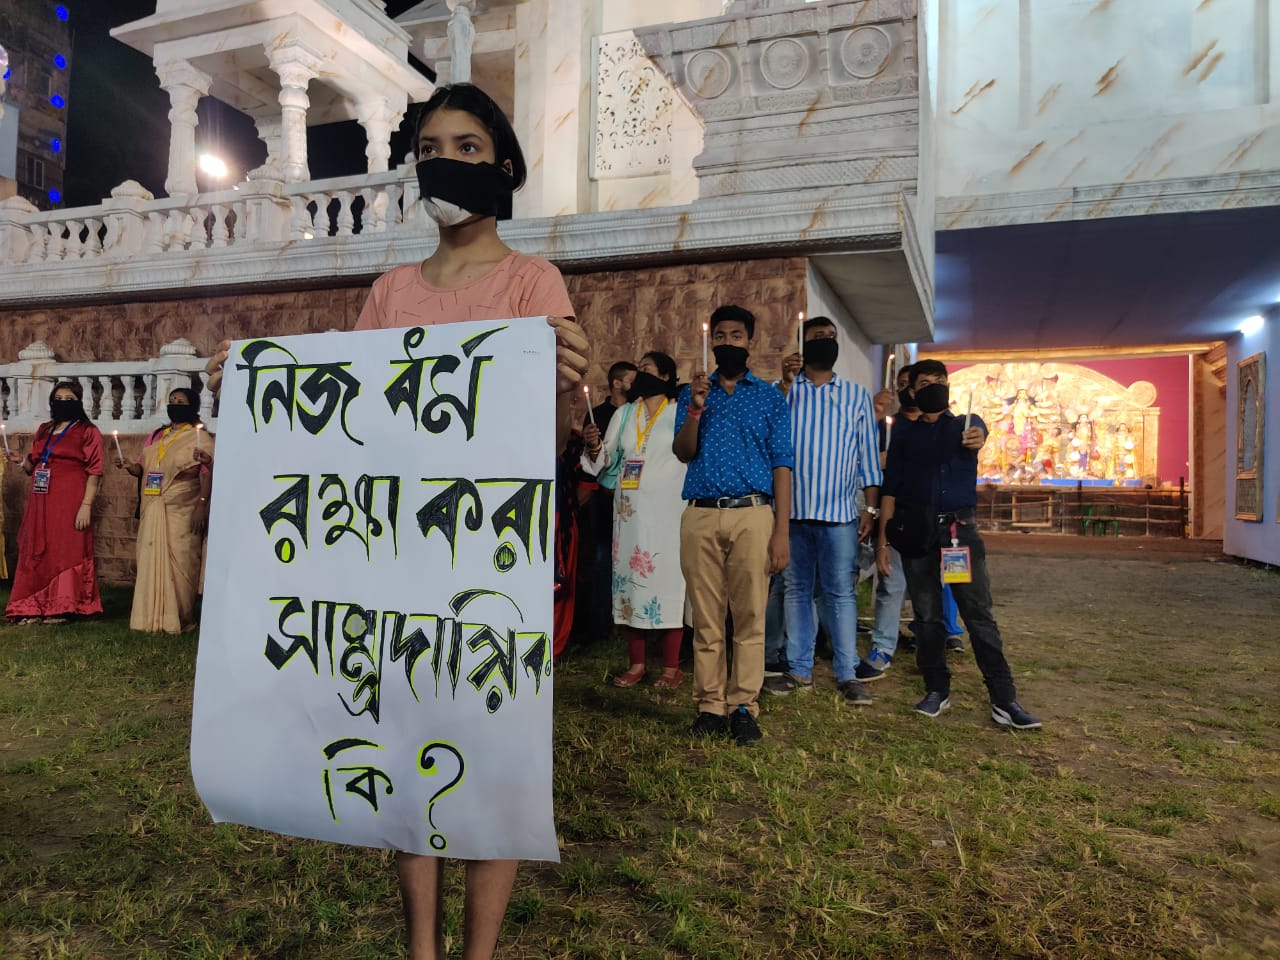 নিজ ধর্ম
রক্ষা করা
সাম্প্রদায়িক
কি?